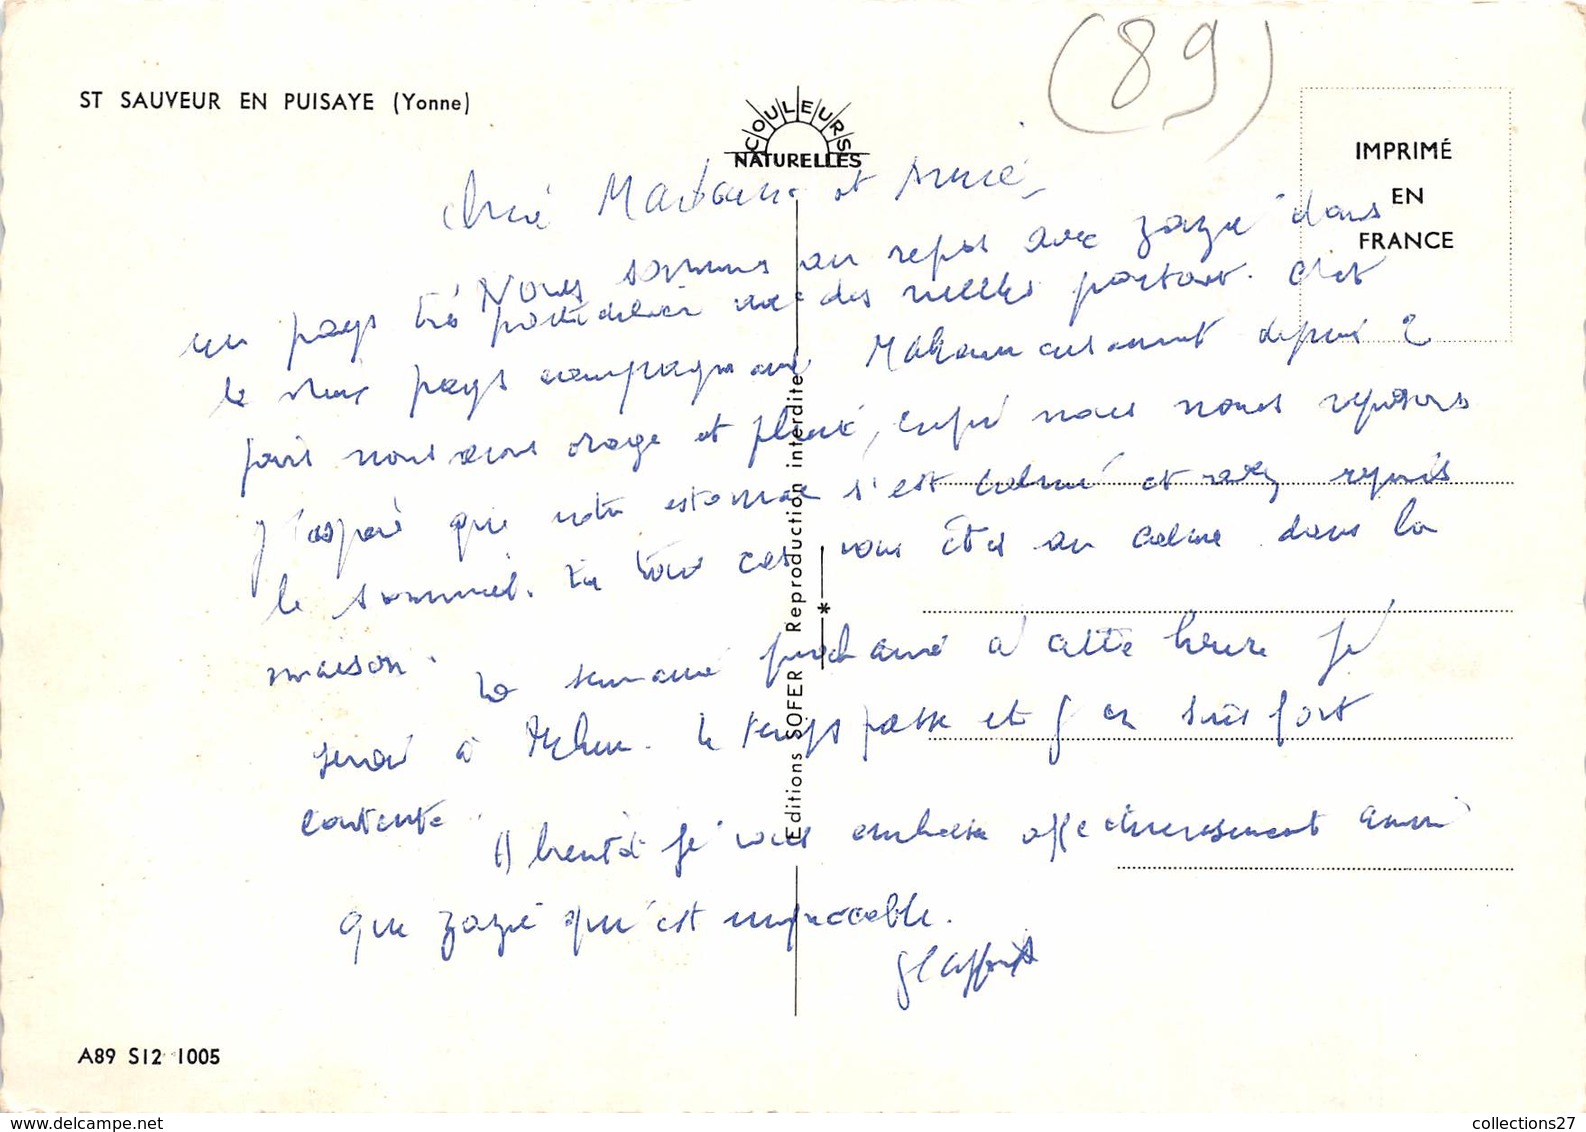 (89)
ST SAUVEUR EN PUISAYE (Yonne)
COULEURS
NATURELLES
IMPRIMÉ
EN
FRANCE
et
Nous sommes au repos avec Zazie dans
un pays très particulier avec des vielles partout. C'est
le vieux pays depuis 2
jours nous avons orage et pluie, enfin nous nous reposons
J'espère que votre estomac s'est calmé et avez repris
le sommeil. En tout cas vous êtes au calme dans la
maison. La semaine prochaine à cette heure je
serai à Melun. Le temps passe et j'en suis fort
contente.
A bientôt je vous embrasse affectueusement ainsi
que Zazie qu'est impeccable.
Editions SOFER Reproduction interdite
*
A89 S12 1005
collections27